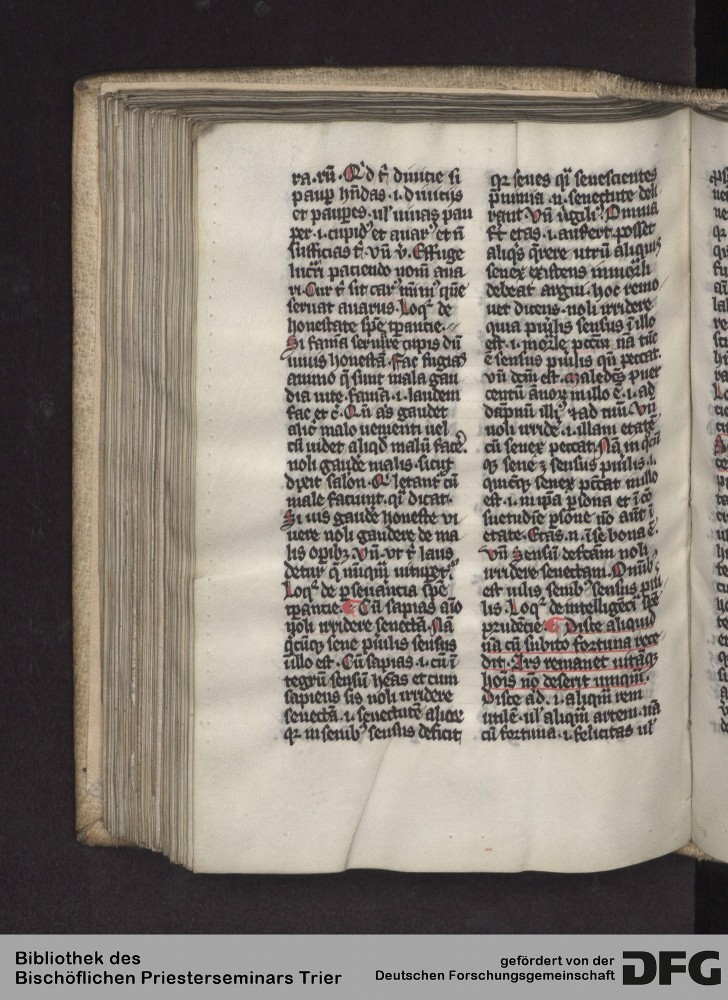 ra.rū. Qd t̄ diuicie si
paup hn̄das .i. diuicijs
et paupes. ul' uiuas pau
per .i. cupid' et auar' et ñ
sufficias t'. vn̄ v̓. Effuge
lucri paciendo nom̄ aua
ri. Cur t̄ sit car' nimi' q̄ue
seruat auarus. Loqr̄ de
honestate spē tp̄ancie.
Si famā seruare cupis dū
uiuis honestā. Fac fugias
animo q̄ sunt mala gau
dia uite. famā .i. laudem
fac et c̄. Qn̄ as gaudet
alic' malo uenienti uel
cū uidet aliqd malū face'.
noli gaude malis. sicut
dixit salon. Q letant' cū
male faciunt. qr̄ dicat.
Si uis gaude honeste vi
uere noli gaudere de ma
lis opibz. vn̄. vt t̄ laus
detur q̄ nūiqm̄ uitupet'.
Loqr̄ de pseuancia spē
tp̄ancie. Cū sapias aīo
noli irridere senectā. Nā
q̄cūqz sene piulis sensus
illo est. Cū sapias .i. cū ī
tegrū sensū hēas et cum
sapiens sis noli irridere
senectā .i. senectutē alicie
qr̄ in senib' sensus deficit
qr̄ senes qi senescientes
p̄ nimia .n. senectute deli
rant. Vn̄ v̓gili'. Omnia
fert etas .i. aufert. posset
aliqs q̄rere utrū aliquis
senex existens inmorli
debeat argui. hoc remo
uet dicens. noli irridere
quia piulis sensus ī illo
est .i. mobile pectm̄ na tūc
ē sensus piulis qn̄ peccat.
vn̄ dcm̄ est. Maledcs puer
centū annoꝝ in illo ē .i. ad
dāpnū illi' ⁊ ad tuū. Vn̄
noli irride .i. illam etatē
cū senex peccat. Nā in qcū
qz sene z sensus piulis .i.
quicūqz senex pccat in illo
est .i. in ip̄a p̄sona et ī cō
suetudine p̄sone nō aūt ī
etate. Etas .n. ī se bona ē.
vn̄ Sensū defctam noli
irridere senectam. Omīb'
est uilis senib' sensus piu
lis. Loqr̄ de intelligēci spē
prudēcie. Disce aliquid
nā cū subito fortuna rece
dit. Ars remanet uitāqz
hoīs nō deserit unqm̄.
Disce ad. .i. aliqm̄ rem
utilē. ul' aliqm̄ artem. nā
cū fortuna .i. felicitas ul'
Bibliothek des
Bischöflichen Priesterseminars Trier
gefördert von der
Deutschen Forschungsgemeinschaft
DFG